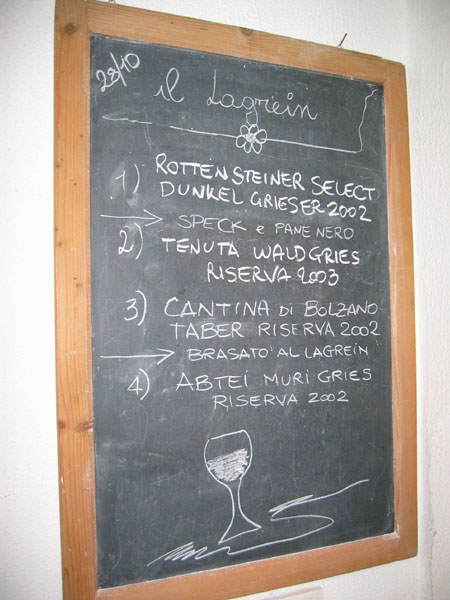 28/10
il Lagrein
1) ROTTENSTEINER SELECT
DUNKEL GRIESER 2002
SPECK e PANE NERO
2) TENUTA WALDGRIES
RISERVA 2003
3) CANTINA di BOLZANO
TABER RISERVA 2002
BRASATO AL LAGREIN
4) ABTEI MURI GRIES
RISERVA 2002